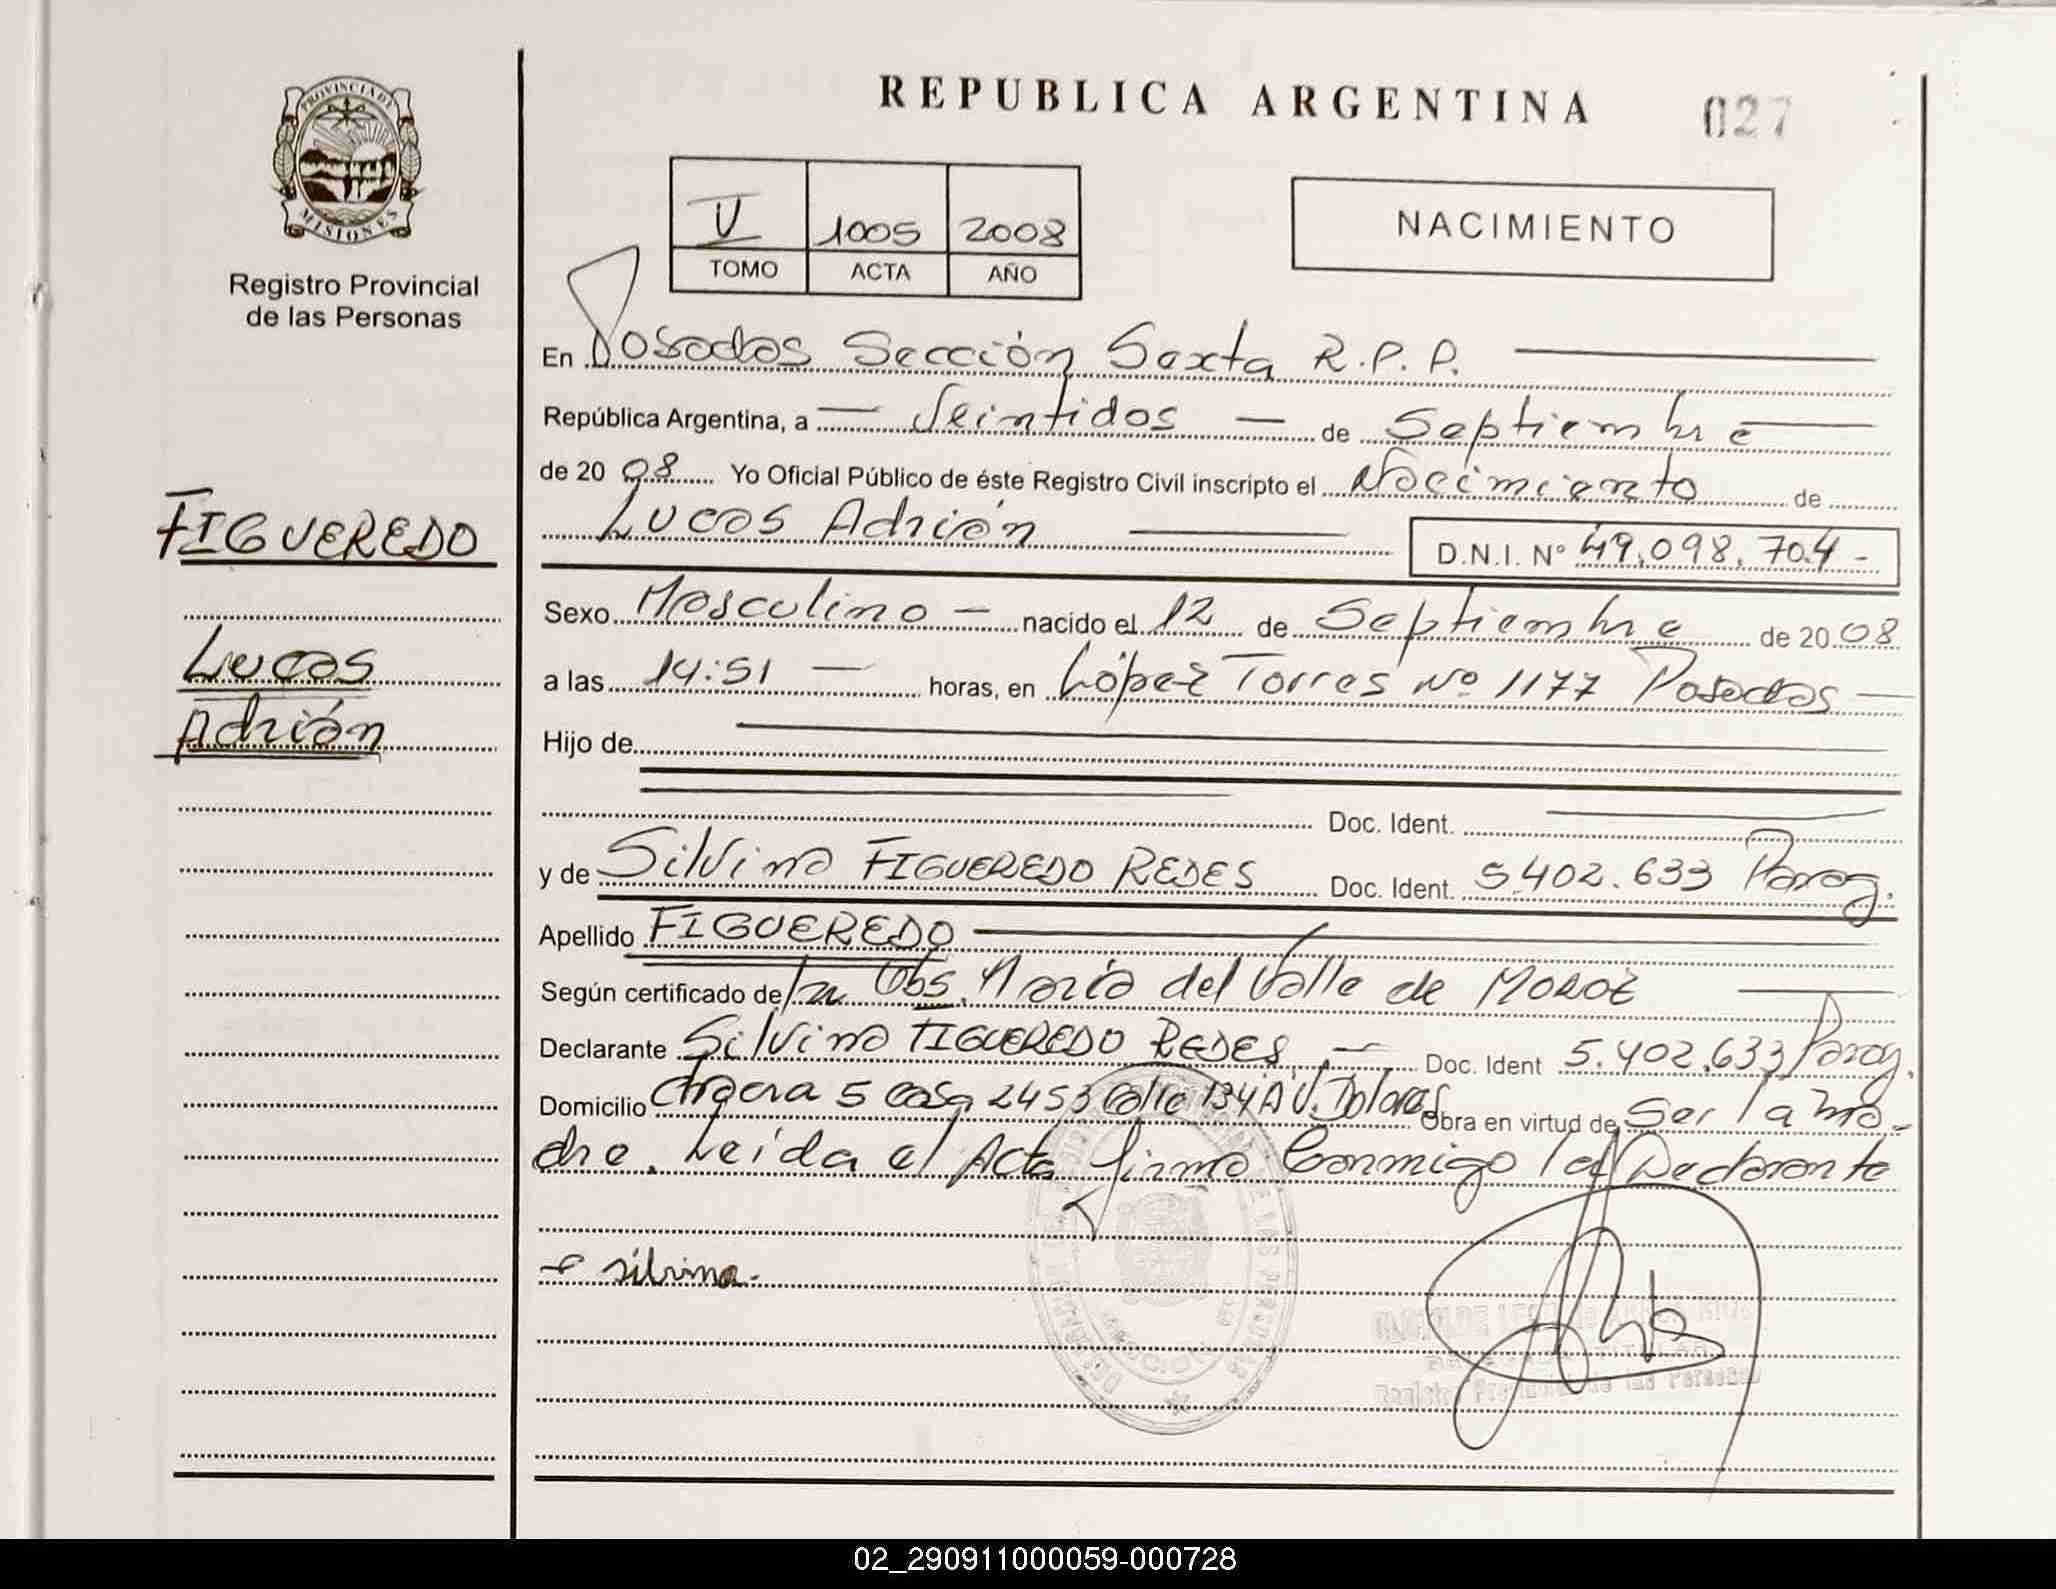 PROVINCIA DE
MISIONES
Registro Provincial
de las Personas
FIGUEREDO
Lucas
Adrián
REPUBLICA ARGENTINA
027
V 1005 2008
TOMO ACTA AÑO
NACIMIENTO
En Posadas Sección Sexta R.P.P.
República Argentina, a Veintidos de Septiembre
de 20 08 Yo Oficial Público de éste Registro Civil inscripto el Nacimiento de
Lucas Adrián D.N.I. Nº 49.098.704-
Sexo Masculino nacido el 12 de Septiembre de 20 08
a las 14:51 horas, en López Torres Nº 1177 Posadas
Hijo de
Doc. Ident.
y de Silvina FIGUEREDO REDES Doc. Ident. 5.402.633 Parag.
Apellido FIGUEREDO
Según certificado de la Obs. María del Valle de MOROZ
Declarante Silvina FIGUEREDO REDES, Doc. Ident 5.402.633 Parag.
Domicilio Chacra 5 casa 2453 calle 134A V. Dolores Obra en virtud de Ser la ma-
dre. Leída el Acta firma conmigo la Declarante
silvina.
Registro Provincial de las Personas
02_290911000059-000728